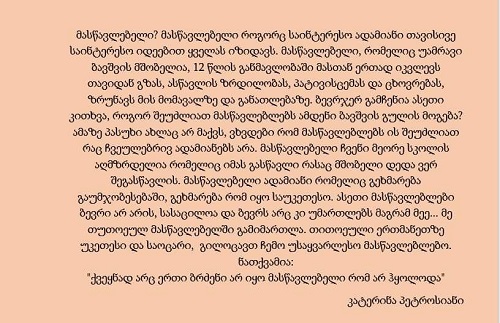 მასწავლებელი? მასწავლებელი როგორც საინტერესო ადამიანი თავისივე
საინტერესო იდეებით ყველას იზიდავს. მასწავლებელი, რომელიც უამრავი
ბავშვის მშობელია, 12 წლის განმავლობაში მასთან ერთად იკვლევს
თავიდან გზას, ასწავლის ზრდილობას, პატივისცემას და ცხოვრებას,
ზრუნავს მის მომავალზე და განათლებაზე. ბევრჯერ გამჩენია ასეთი
კითხვა, როგორ შეუძლიათ მასწავლებლებს ამდენი ბავშვის გულის მოგება?
ამაზე პასუხი ახლაც არ მაქვს, ვხვდები რომ მასწავლებლებს ის შეუძლიათ
რაც ჩვეულებრივ ადამიანებს არა. მასწავლებელი ჩვენი მეორე სკოლის
აღმზრდელია რომელიც იმას გასწავლი რასაც მშობელი დედა ვერ
შეგასწავლის. მასწავლებელი ადამიანი რომელიც გეხმარება
გაუმჯობესებაში, გეხმარება რომ იყო საუკეთესო. ასეთი მასწავლებლები
ბევრი არ არის, სასაცილოა და ბევრს არც კი უმართლებს მაგრამ მეე... მე
თუთოეულ მასწავლებელში გამიმართლა. თითოეული ერთმანეთზე
უკეთესი და საოცარი, გილოცავთ ჩემო უსაყვარლესო მასწავლებლებო.
ნათქვამია:
"ქვეყნად არც ერთი ბრძენი არ იყო მასწავლებელი რომ არ ჰყოლოდა"
კატერინა პეტროსიანი